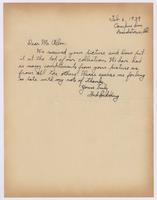 Feb. 6, 1939
Dear Mr. Allen:
We received your picture and have put
it at the top of our collection. We have had
as many compliments from your picture as
from all the others. Please excuse me for being
so late with my note of thanks.
Yours truly